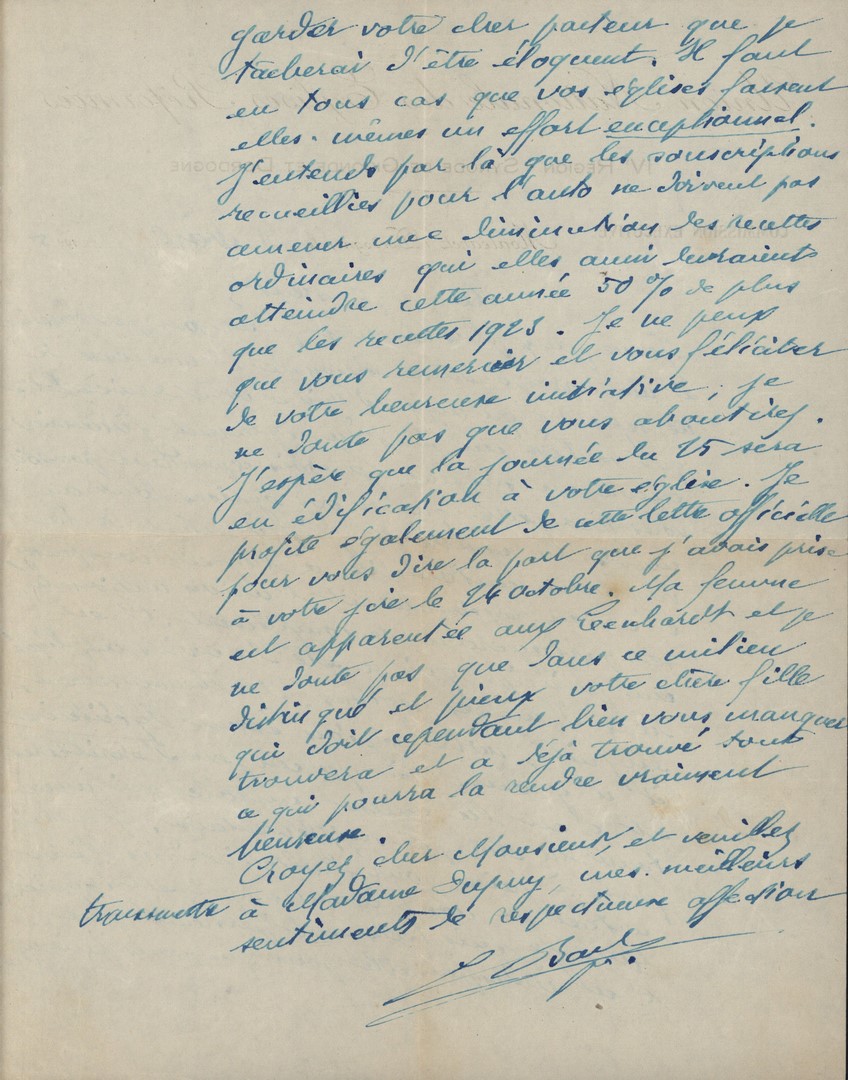 garder votre cher pasteur que je
tacherai d'être éloquent. Il faut
en tous cas que vos églises fassent
elles-mêmes un effort exceptionnel.
J'entends par là que les souscriptions
recueillies pour l'auto ne doivent pas
amener une diminution des recettes
ordinaires qui elles aussi devraient
atteindre cette année 50% de plus
que les recettes 1923. Je ne peux
que vous remercier et vous féliciter
de votre heureuse initiative, je
ne doute pas que vous aboutirez.
J'espère que la journée du 25 sera
en édification à votre église. Je
profite également de cette lettre officielle
pour vous dire la part que j'avais prise
à votre joie le 24 octobre. Ma femme
est apparentée aux Leenhardt et je
ne doute pas que dans ce milieu
distingué et pieux votre chère fille
qui doit cependant bien vous manquer
trouvera et a déjà trouvé tout
ce qui pourra la rendre vraiment
heureuse.
Croyez, cher Monsieur, et veuillez
transmettre à Madame Dupuy, mes meilleurs
sentiments de respectueuse affection